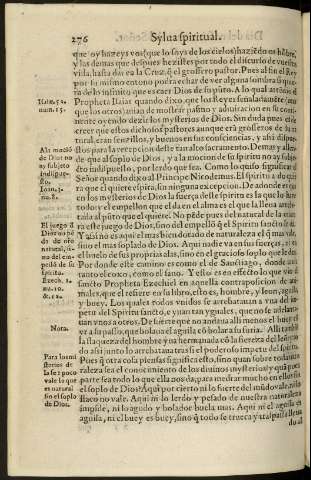 276 Sylua spiritual.
que oy hazeys vos (que lo soys de los cielos) hazié dos es hōbre,
y las demas que despues hezistes por todo el discurso de vuestra
vida, hasta dar en la Cruz, q̃ el grossero pastor. Pues al fin el Rey
por su mismo entono podra echar de ver alguna sombra que
ra de lo infinito que es caer Dios de su pūto. A lo qual atēdio el
Propheta Isaias quando dixo, que los Reyes
que los otros) auian de mostrar pasmo y admiracion en su conti
nente oyendo dezir los mysterios de Dios. Sin duda pues
creer que estos dichosos pastores aunque erā grosseros de
tural, eran senzillos, y buenos en sus consciencias, y assi dispue
stos para la recepcion deste tan alto sacramento. Demas y allen
de que al soplo de Dios, y a la mocion de su spiritu no ay subje
cto indispuesto, por lerdo que sea. Como lo quiso significar el
Señor quando dixo al Principe Nicodemus. El spiritu a do quie
ra que el quiere espira, sin ninguna excepcion. De adonde
en los mysterios de Dios la fuerça deste spiritu es la que lo haze
todo: y el empellon que el da en el alma es el que la lleua
tada al pūto que el quiere. No pēde pues del natural de la
ra este juego de Dios, sino del empellō q̃ el Spiritu sancto le da.
Y assi no es aquel el mas bien dotado de naturaleza el q̃ mas vale,
sino el mas soplado de Dios. Aqui nadie va en sus fuerças, ni es
el buelo de sus proprias alas, sino en el gracioso soplo que le dan.
Por donde este camino es como el de Sanctiago, donde anda
tanto el coxo, como el sano. Y esto es en efecto lo que vio el
sancto Propheta Ezechiel en aquella contraposicion de ani
males, que el refiere en su libro, esto es, hombre, y leon, aguila,
y buey. Los quales todos vnidos se arrebatauan a vna del im
petu del Spiritu sancto, y yuan tan yguales, que no se adelanta
uan vnos a otros. De suerte que no andaua alli menos el buey
er a su passo, que bolaua el aguila o bolar a su furia. Alli tambiē
la flaqueza del hombre yua hermanada cō la fiereza del leō, q̃
do assi junto lo arrebataua tras si el poderoso impetu del spiritu.
Pues q̃ otra cosa piensas significa esto, sino que quan sobre toda natu
raleza sea el conocimiento de los diuinos mysterios y quā poca
parte sea todo lo que ella nos da, para medrar mucho en ellos sin
el soplo de Dios? Aqui por cierto ni lo fuerte del mūdo vale, ni lo
flaco no vale. Aqui ni lo lerdo y pesado de nuestra naturaleza
impide, ni lo agudo y bolador buela mas. Aqui ni el aguila es
aguila, ni el buey es buey, sino q̃ todo se trueca y
do al
Isaia. 52.
num. 15.
A la mociō
de Dios no
ay subjeto
indispue-
sto.
Ioan. 3.
nu. 8.
El juego d̃
Dios no pē
de de nro̅
natural, si-
no del em-
pellō de su
spiritu.
Ezech. 1.
nu. 10.
&. 12.
Nota.
Para los my
sterios de
la fe: poco
vale lo que
es natural
sin el soplo
de Dios.